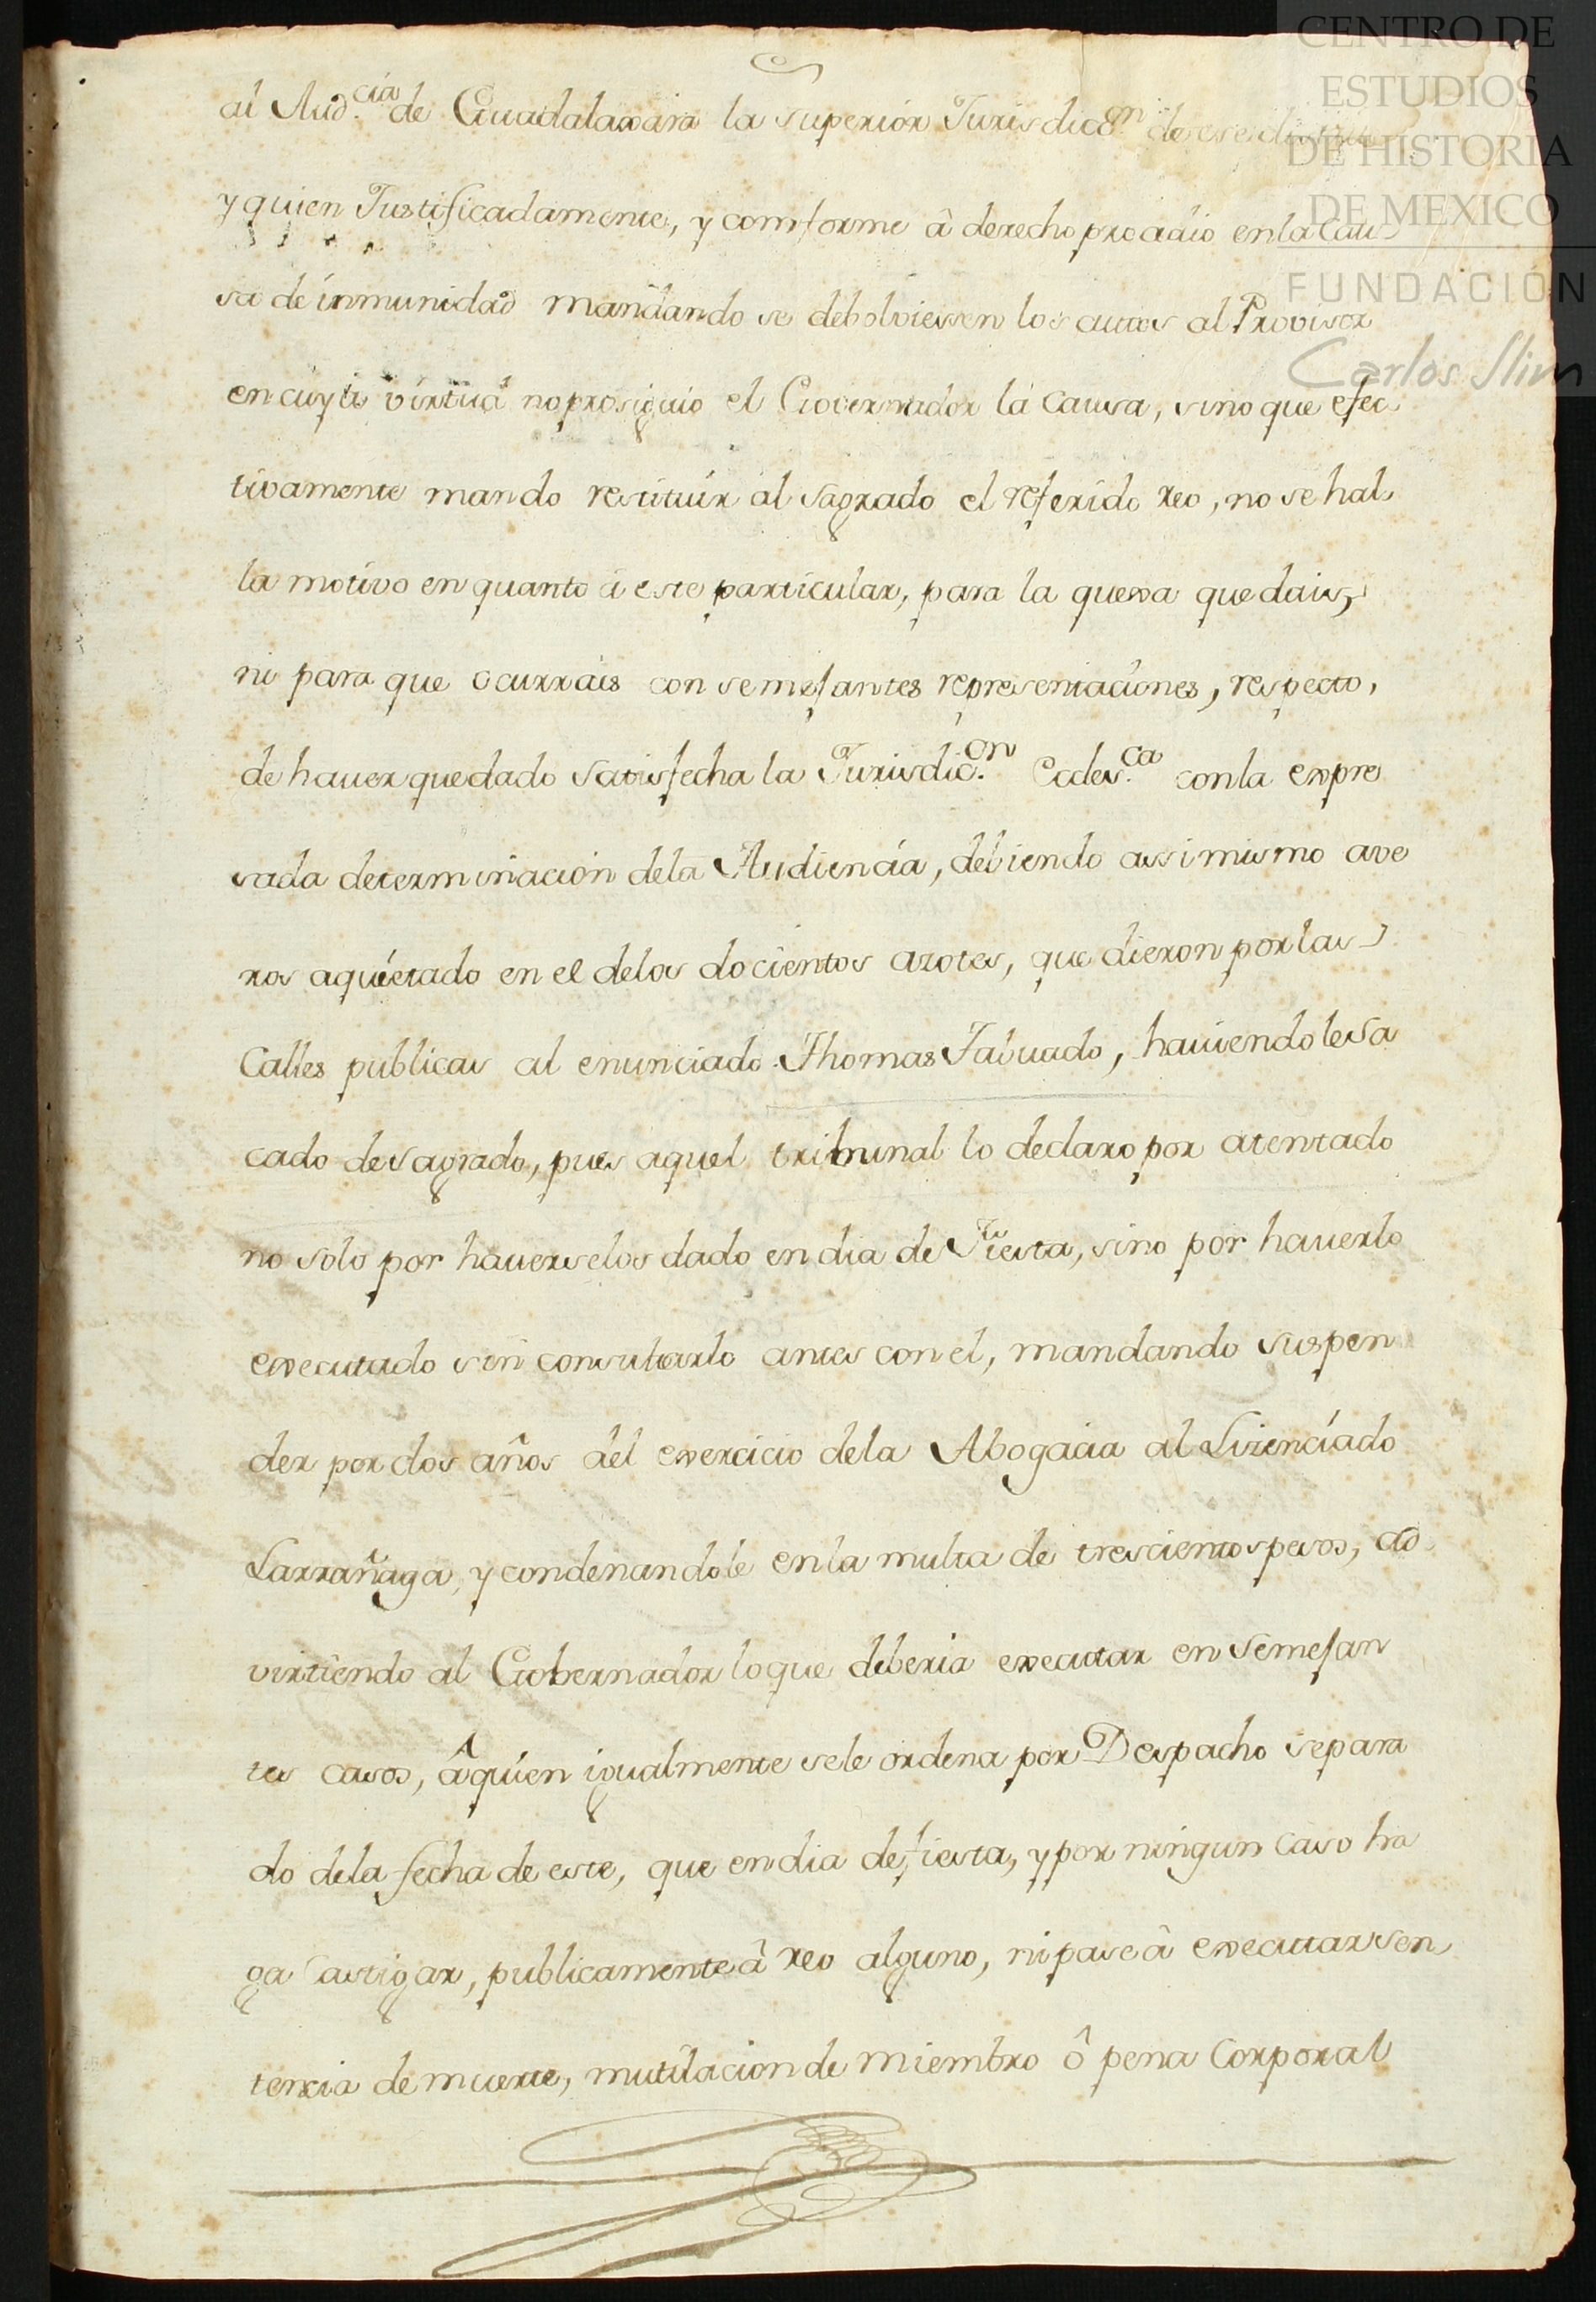 CENTRO DE
ESTUDIOS
DE HISTORIA
DE MEXICO
FUNDACIÓN
Carlos Slim
al Aud.cia de Guadalaxara la superior Jurisdicc.on de ese
y quien Justificadamente, y comforme â derecho procedio en la Cau
sa de inmunidad mandando se debolviessen los autos al Provisor
en cuya virtud no prosiguio el Governador la causa, sino que efec
tivamente mando restituir al Sagrado el referido reo, no se hal
la motivo en quanto á este particular, para la quexa que dais,
ni para que ocurrais con semejantes representaciones, respecto,
de hauer quedado Satisfecha la Jurisdic.on Ecles.ca con la expre
sada determinacion de la Audiencia, debiendo assimismo ave
ros aquietado en el de los docientos azotes, que dieron por las
Calles publicas al enunciado Thomas Tabuado, hauiendole sa
cado de sagrado, pues aquel tribunal lo declaro por atentado
no solo por hauerselos dado en dia de Fiesta, sino por hauerlo
executado sin consultarlo antes con el, mandando suspen
der por dos años del exercicio de la Abogacia al Lizenciado
Larrañaga, y condenandole en la multa de trescientos pesos, ad
virtiendo al Gobernador lo que deberia executar en Semejan
tes casos, â quien igualmente se le ordena por Despacho separa
do de la fecha de este, que en dia de fiesta, y por ningun Caso ha
ga Castigar, publicamente â reo alguno, ni pase â executar sen
tencia de muerte, mutilacion de miembro ô pena Corporal